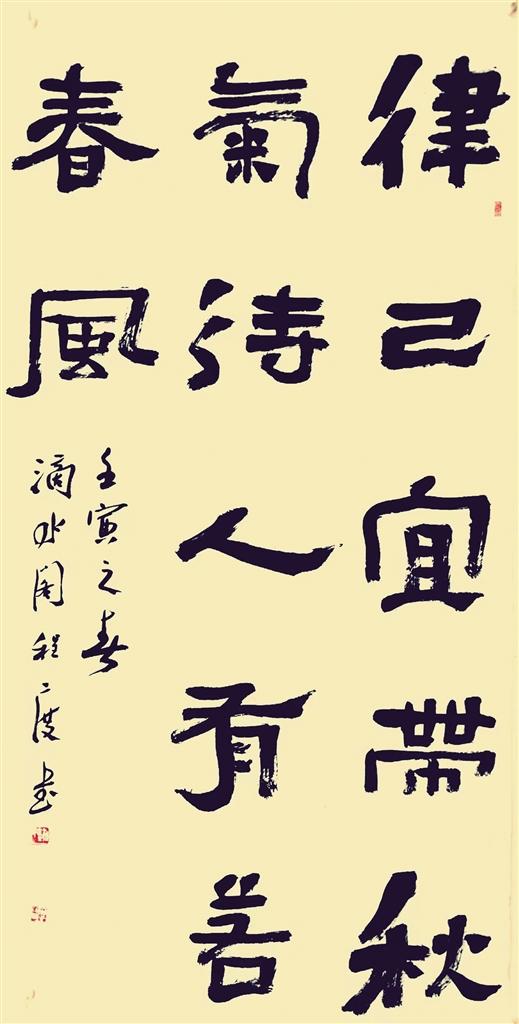 律己宜帶秋
氣待人有若
春風
壬寅之春
滴水阁程二度書